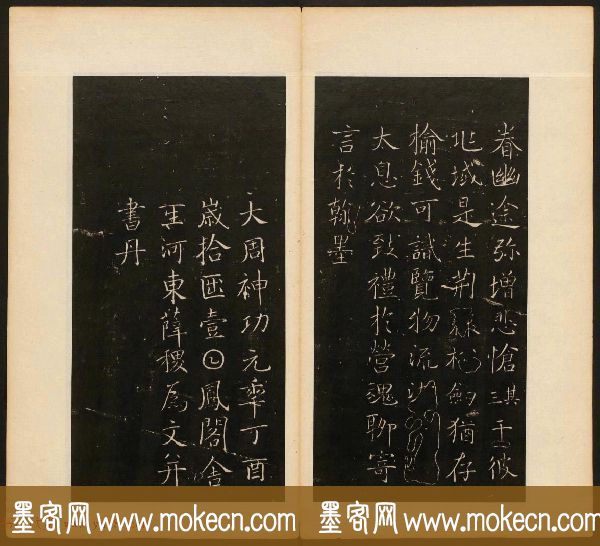 眷幽途弥增悲愴其三于彼
兆域是生荆棘松劍猶存
榆錢可識覽物流
大息欲致禮於營魂聊寄
言於翰墨
大周神功元𠡦丁酉
歲拾𠥱壹𡆠鳳閣舍
𤯔河東薛稷爲文并
書丹
墨客网 www.mokecn.com
墨客网 www.mokecn.com